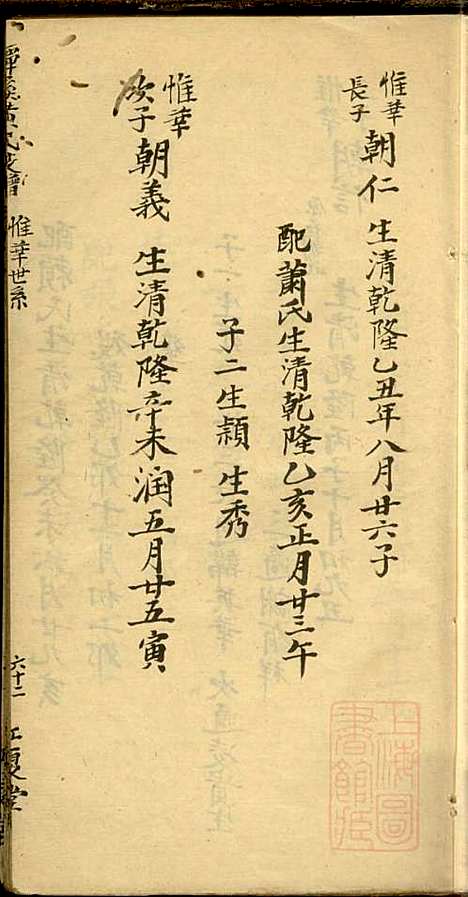 惟華長子 朝仁 生清乾隆乙丑年八月廿六子
配蕭氏生清乾隆乙亥正月廿三午
子二生穎 生秀
惟華次子 朝義 生清乾隆辛未潤五月廿五寅
黃氏支譜 惟華世系 六十二 江夏堂
上海圖書館藏